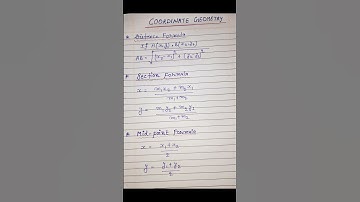 COORDINATE GEOMETRY
* Distance Formula
If A(x₁,y₁), B(x₂,y₂)
AB = √(x₂-x₁)² + (y₂-y₁)²
* Section Formula
x = m₁x₂ + m₂x₁
m₁+m₂
y = m₁y₂ + m₂y₁
m₁+m₂
* Mid-point Formula
x = x₁+x₂
2
y = y₁+y₂
2